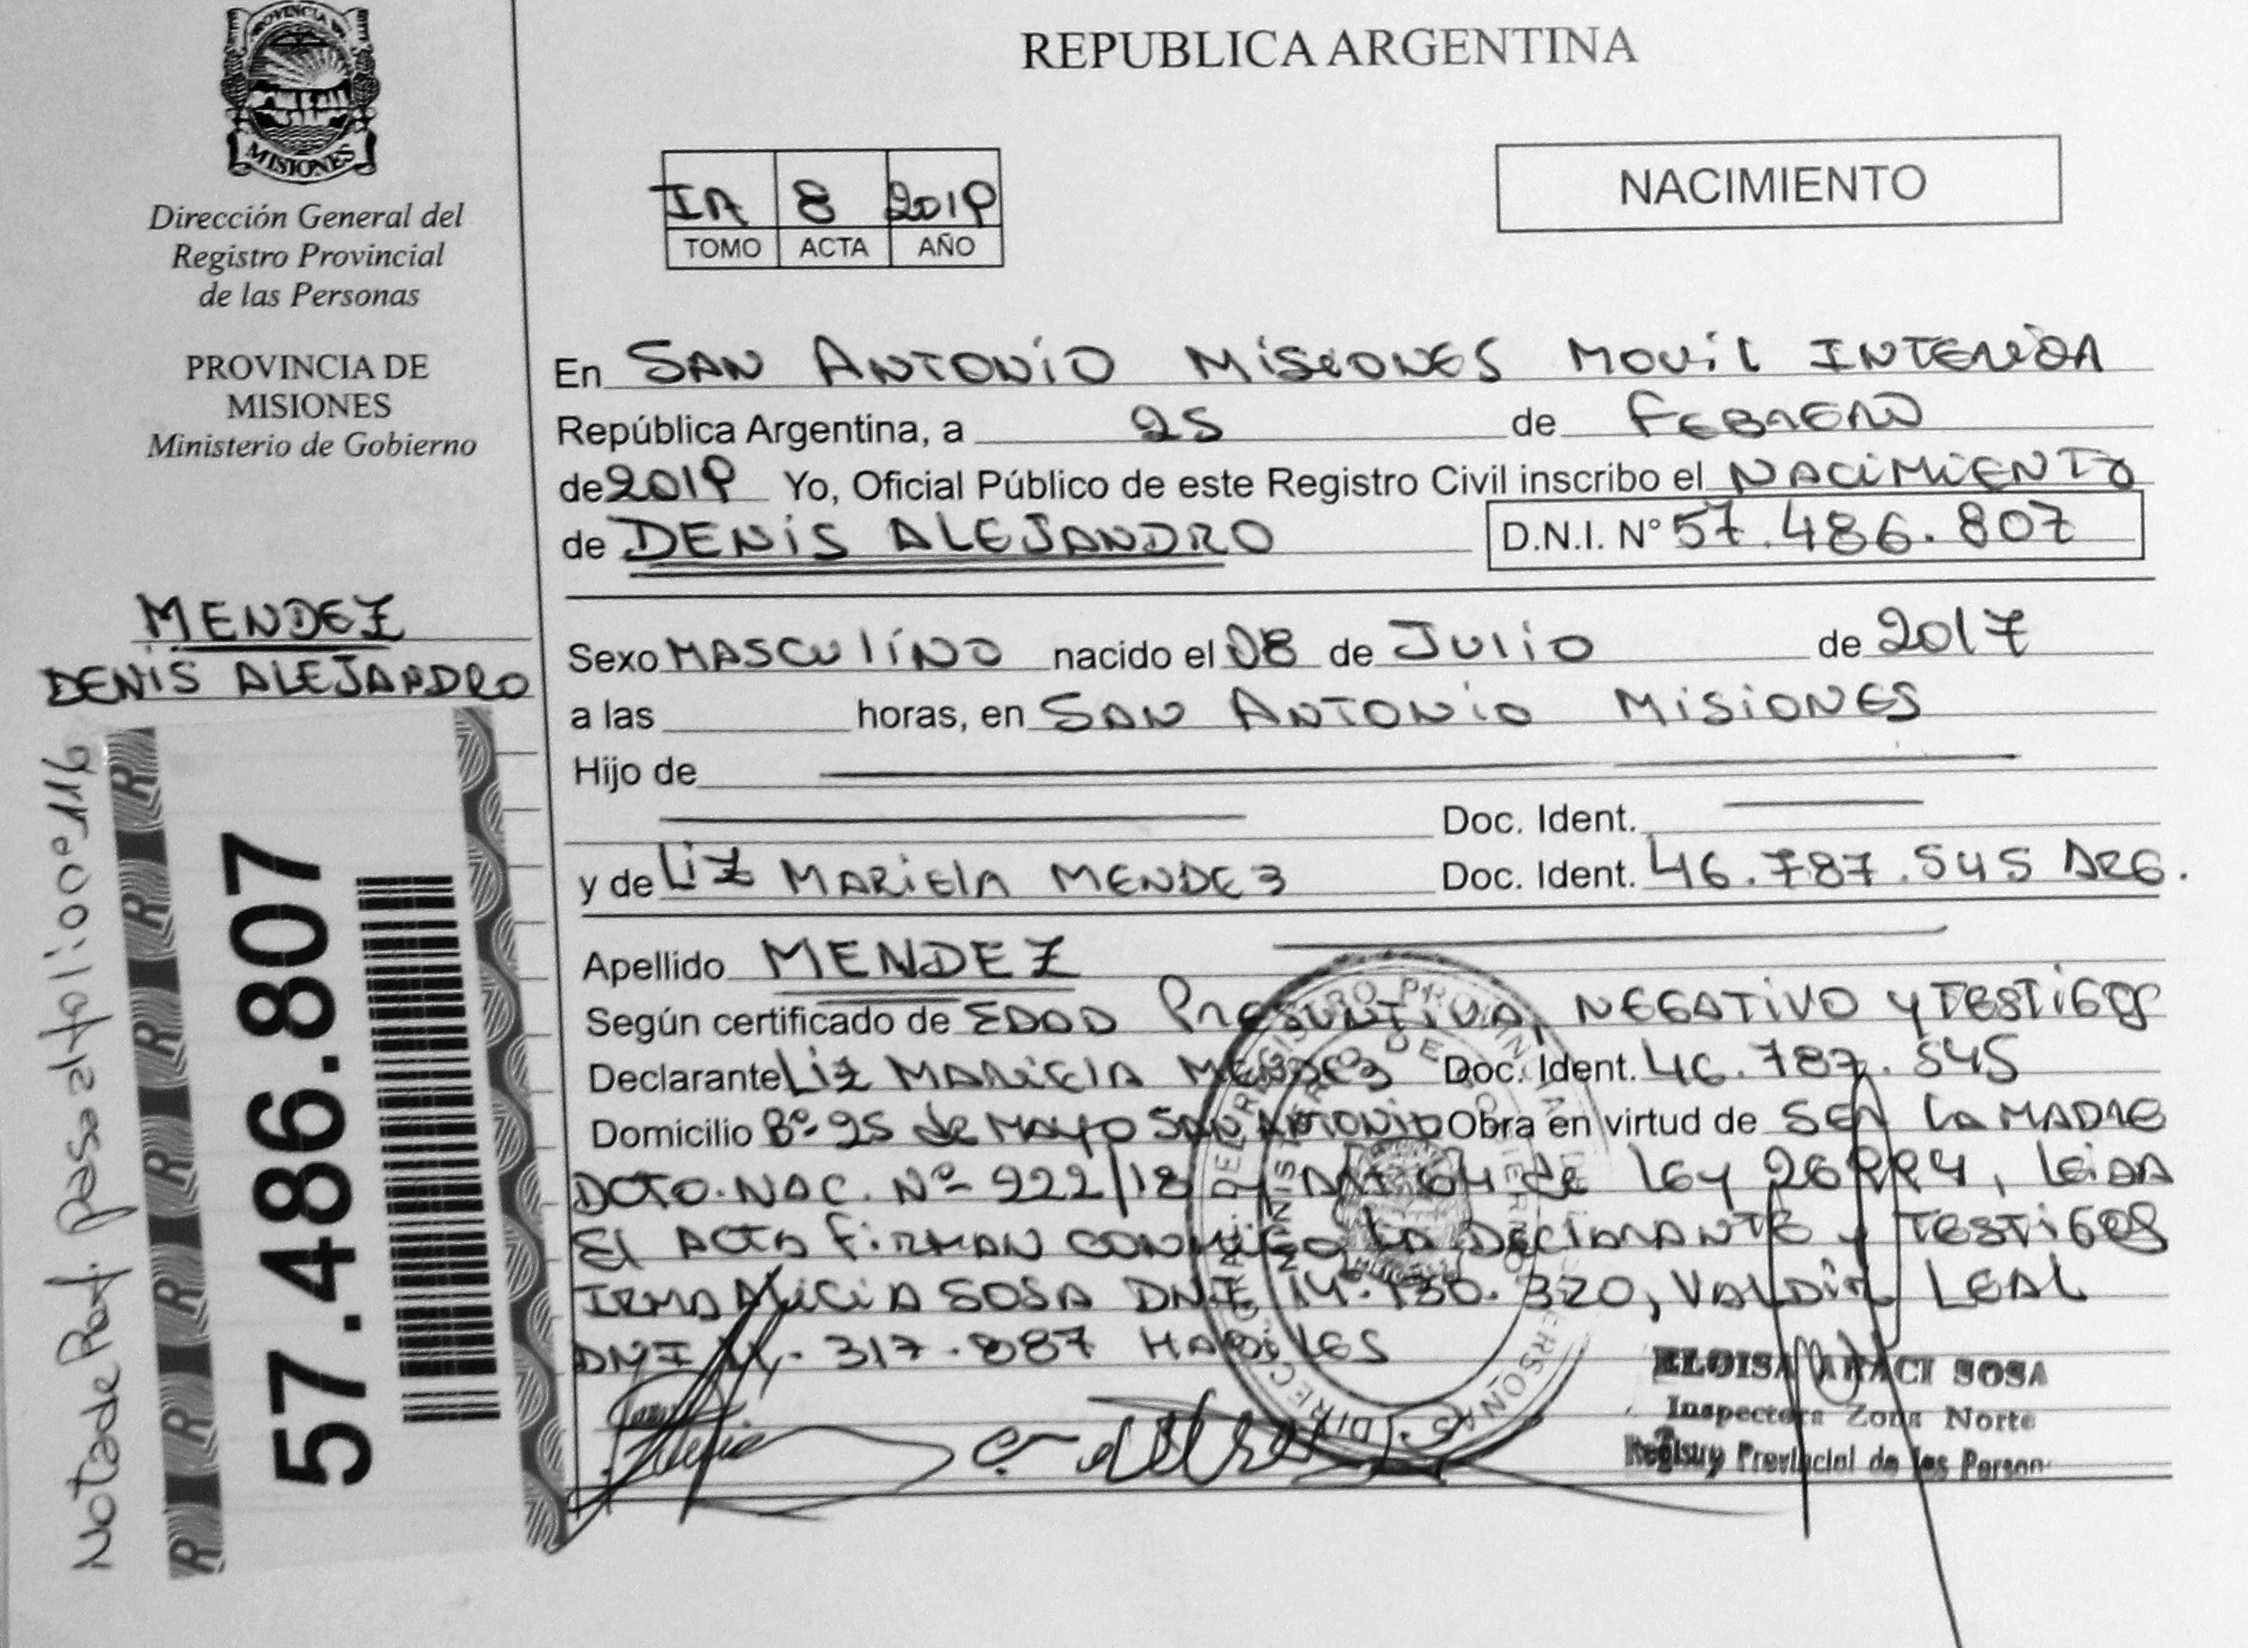 PROVINCIA DE
MISIONES
Dirección General del
Registro Provincial
de las Personas
PROVINCIA DE
MISIONES
Ministerio de Gobierno
MENDEZ
DENIS ALEJANDRO
Nota de Ref. pasa al folio 00º116
R R R R R R R
57.486.807
REPUBLICA ARGENTINA
IA 8 2019
TOMO ACTA AÑO
NACIMIENTO
En SAN ANTONIO MISIONES MOVIL INTERIOR
República Argentina, a 25 de FEBRERO
de 2019 Yo, Oficial Público de este Registro Civil inscribo el NACIMIENTO
de DENIS ALEJANDRO D.N.I. N° 57.486.807
Sexo MASCULINO nacido el 08 de JULIO de 2017
a las horas, en SAN ANTONIO MISIONES
Hijo de
Doc. Ident.
y de LIZ MARIELA MENDEZ Doc. Ident. 46.787.545 ARG.
Apellido MENDEZ
Según certificado de EDAD PRESUNTIVA, NEGATIVO Y TESTIGOS
Declarante LIZ MARIELA MENDEZ Doc. Ident. 46.787.545
Domicilio Bº 25 de MAYO SAN ANTONIO Obra en virtud de SER LA MADRE
DCTO. NAC. Nº 222/18 Y ART 64 de LEY 26994, LEIDA
EL ACTA FIRMAN CONMIGO LA DECLARANTE Y TESTIGOS
IRMA ALICIA SOSA DNI 14.130.320, VALDIR LEAL
DNI 317.887 HABILES
ELOISA ARACI SOSA
Inspectora Zona Norte
Registro Provincial de las Person